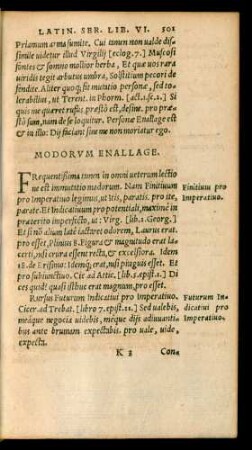 LATIN. SER. LIB. VI. 501
Priamum arma sumite. Cui tamen non valde dis-
simile videtur illud Virgilij [eclog.7.] Muscosi
fontes & somno mollior herba, Et quæ vos rara
viridis tegit arbutus umbra, Solstitium pecori de-
fendite. Aliter quoq; fit mutatio personæ, sed to-
lerabilius, ut Terent. in Phorm. [act.1.sc.2.] Si
quis me quæret rufus, præstò est, desine. pro præ-
stò sum, nam de se loquitur. Personæ Enallage est
& in illo: Dij faciant sine me non moriatur ego.
MODORVM ENALLAGE.
FRequentissima tamen in omni veterum lectio
ne est immutatio modorum. Nam Finitiuum
pro Imperatiuo legimus, ut itis, paratis. pro ite,
parate. Et Indicatiuum pro potentiali, maximè in
præterito imperfecto, ut: Virg. [lib.1.Georg.]
Et si nõ alium latè iactaret odorem, Laurus erat.
pro esset, Plinius 8. Figura & magnitudo erat la-
certi, nisi crura essent recta, & excelsiora. Idem
18. de Erisimo: Idemq́; erat, nisi pinguis esset. Et
pro subiunctiuo. Cic ad Attic. [lib.5.epist.1.] Di
ces quid? quasi istbuc erat magnum, pro esset.
Rursus Futurum Indicatiui pro Imperatiuo.
Cicer. ad Trebat. [libro 7. epist.11.] Sed ualebis,
meáque negocia uidebis, méque dijs adiuuanti-
bus ante brumam expectabis. pro uale, uide,
expecta.
Finitiuū pro
Imperatiuo.
Futurum In-
dicatiui pro
Imperatiuo.
K 3 Con-